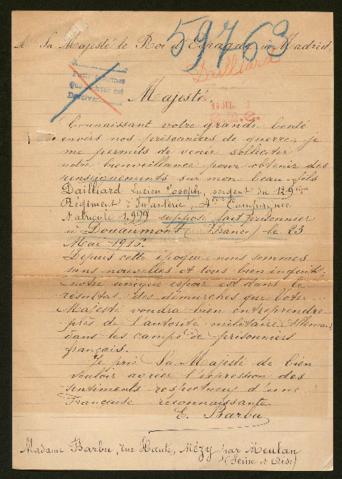 59763
A Sa Majesté le Roi d'Espagne, en Madrid
Dailliard
Majesté,
Connaissant votre grande bonté
envers nos prisonniers de guerre, je
me permets de venir solliciter
votre bienveillance pour obtenir des
renseignements sur mon beau fils
Dailliard Lucien Joseph, sergent du 129e
Régiment d'Infanterie, 4me Compagnie
Matricule 1,999 supposé fait prisonnier
à Douaumont (France) le 23
Mai 1916.
Depuis cette époque nous sommes
sans nouvelles et tous bien inquiets;
notre unique espoir est dans le
résultat des démarches que Votre
Majesté voudra bien entreprendre
près de l'autorité militaire Allemande
dans les camps de prisonniers
français.
Je prie Sa Majesté de bien
vouloir agréer l'expression des
sentiments respectueux d'une
Française reconnaissante
E. Barbu
Madame Barbu, rue Haute, Mézy par Meulan
(Seine et Oise)